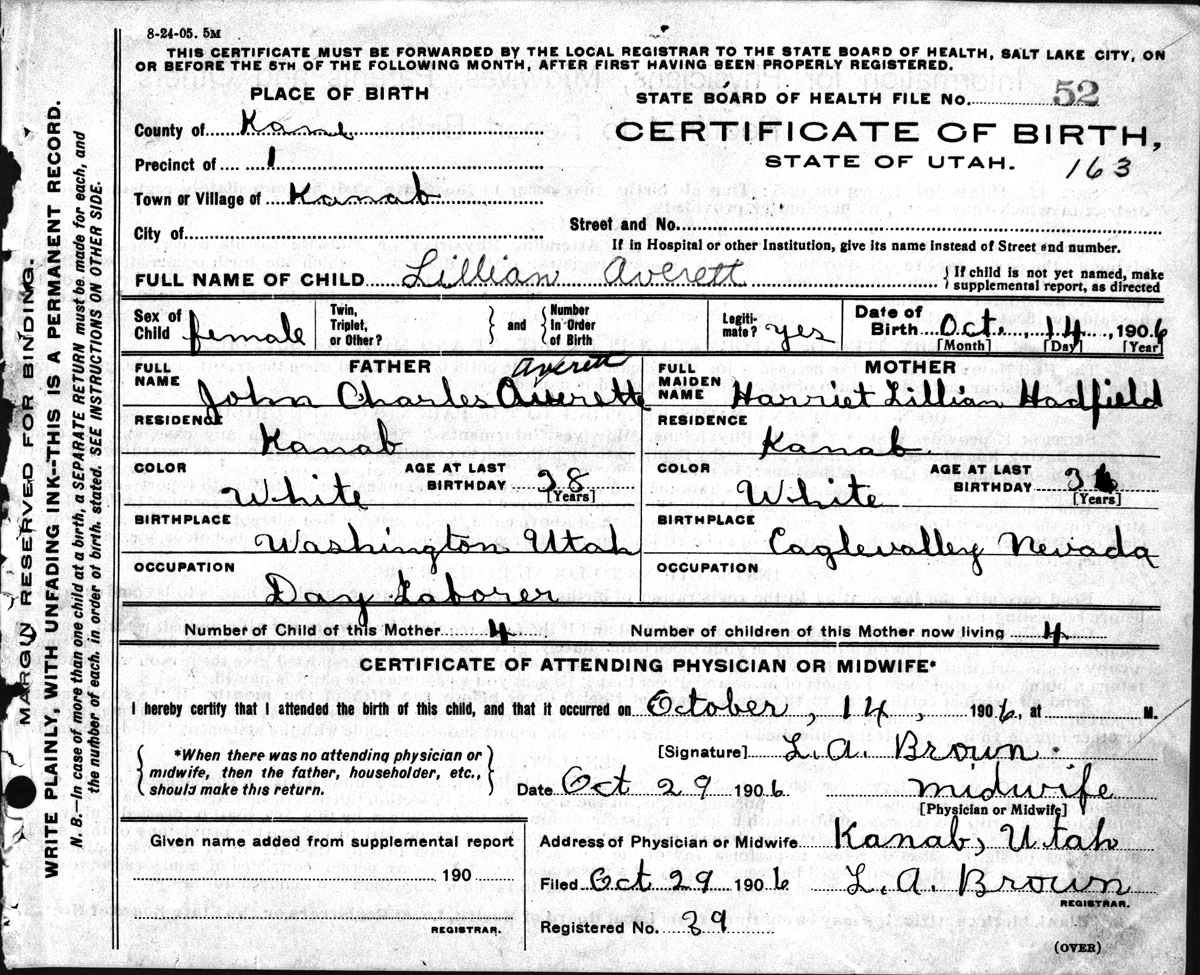 8-24-05. 5M
THIS CERTIFICATE MUST BE FORWARDED BY THE LOCAL REGISTRAR TO THE STATE BOARD OF HEALTH, SALT LAKE CITY, ON
OR BEFORE THE 5TH OF THE FOLLOWING MONTH, AFTER FIRST HAVING BEEN PROPERLY REGISTERED.
PLACE OF BIRTH
STATE BOARD OF HEALTH FILE No. 52
County of Kane
CERTIFICATE OF BIRTH,
STATE OF UTAH. 163
Precinct of 1
Town or Village of Kanab
City of Street and No.
If in Hospital or other Institution, give its name instead of Street and number.
FULL NAME OF CHILD Lillian Averett } If child is not yet named, make supplemental report, as directed
Sex of Child female Twin, Triplet, or Other? } and { Number In Order of Birth Legiti-mate? yes Date of Birth Oct. 14, 1906
[Month] [Day] [Year]
FATHER MOTHER
Averett
FULL NAME John Charles Averett FULL MAIDEN NAME Harriet Lillian Hadfield
RESIDENCE Kanab RESIDENCE Kanab
COLOR White AGE AT LAST BIRTHDAY 38 [Years] COLOR White AGE AT LAST BIRTHDAY [Years]
BIRTHPLACE Washington Utah BIRTHPLACE Eaglevalley Nevada
OCCUPATION Day Laborer OCCUPATION
Number of Child of this Mother 4 Number of children of this Mother now living 4
CERTIFICATE OF ATTENDING PHYSICIAN OR MIDWIFE*
I hereby certify that I attended the birth of this child, and that it occurred on October, 14, 1906, at M.
{ *When there was no attending physician or midwife, then the father, householder, etc., should make this return. }
[Signature] L. A. Brown.
Date Oct 29 1906 midwife
[Physician or Midwife]
Given name added from supplemental report
190
REGISTRAR.
Address of Physician or Midwife Kanab, Utah
Filed Oct 29 1906 L. A. Brown
REGISTRAR.
Registered No. 39
(OVER)
MARGIN RESERVED FOR BINDING.
WRITE PLAINLY, WITH UNFADING INK-THIS IS A PERMANENT RECORD.
N. B.—In case of more than one child at a birth, a SEPARATE RETURN must be made for each, and
the number of each, in order of birth, stated. SEE INSTRUCTIONS ON OTHER SIDE.